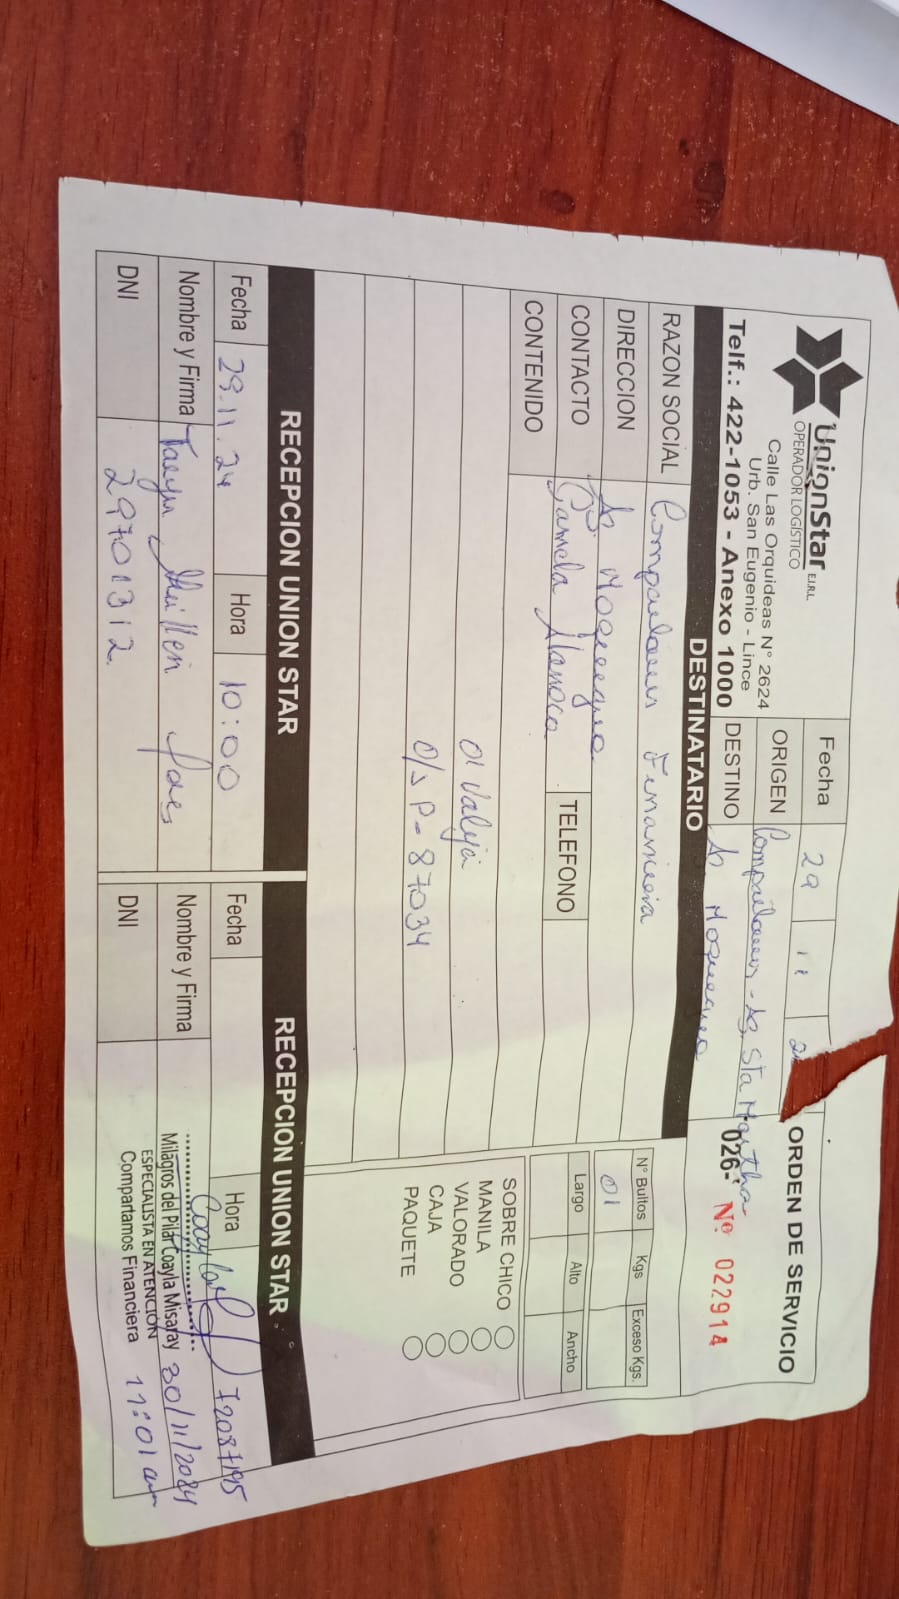 UnionStar E.I.R.L.
OPERADOR LOGÍSTICO
Calle Las Orquideas N° 2624
Urb. San Eugenio - Lince
Telf.: 422-1053 - Anexo 1000
Fecha 29 11 2
ORDEN DE SERVICIO
ORIGEN Compartamos - Ag. Sta Martha
DESTINO Ag Moquegua
026- Nº 022914
DESTINATARIO
RAZON SOCIAL Compartamos Financiera
DIRECCION Ag Moquegua
CONTACTO Pamela
TELEFONO
CONTENIDO
01 Valija
O/S P- 87034
N° Bultos Kgs Exceso Kgs.
01
Largo Alto Ancho
SOBRE CHICO
MANILA
VALORADO
CAJA
PAQUETE
RECEPCION UNION STAR
Fecha 29.11.24 Hora 10:00
Nombre y Firma
DNI 29701312
RECEPCION UNION STAR
Fecha Hora
Nombre y Firma
DNI
72087195
Milagros del Pilar Coayla Misaray
ESPECIALISTA EN ATENCIÓN
Compartamos Financiera
30/11/2024
11:01 am